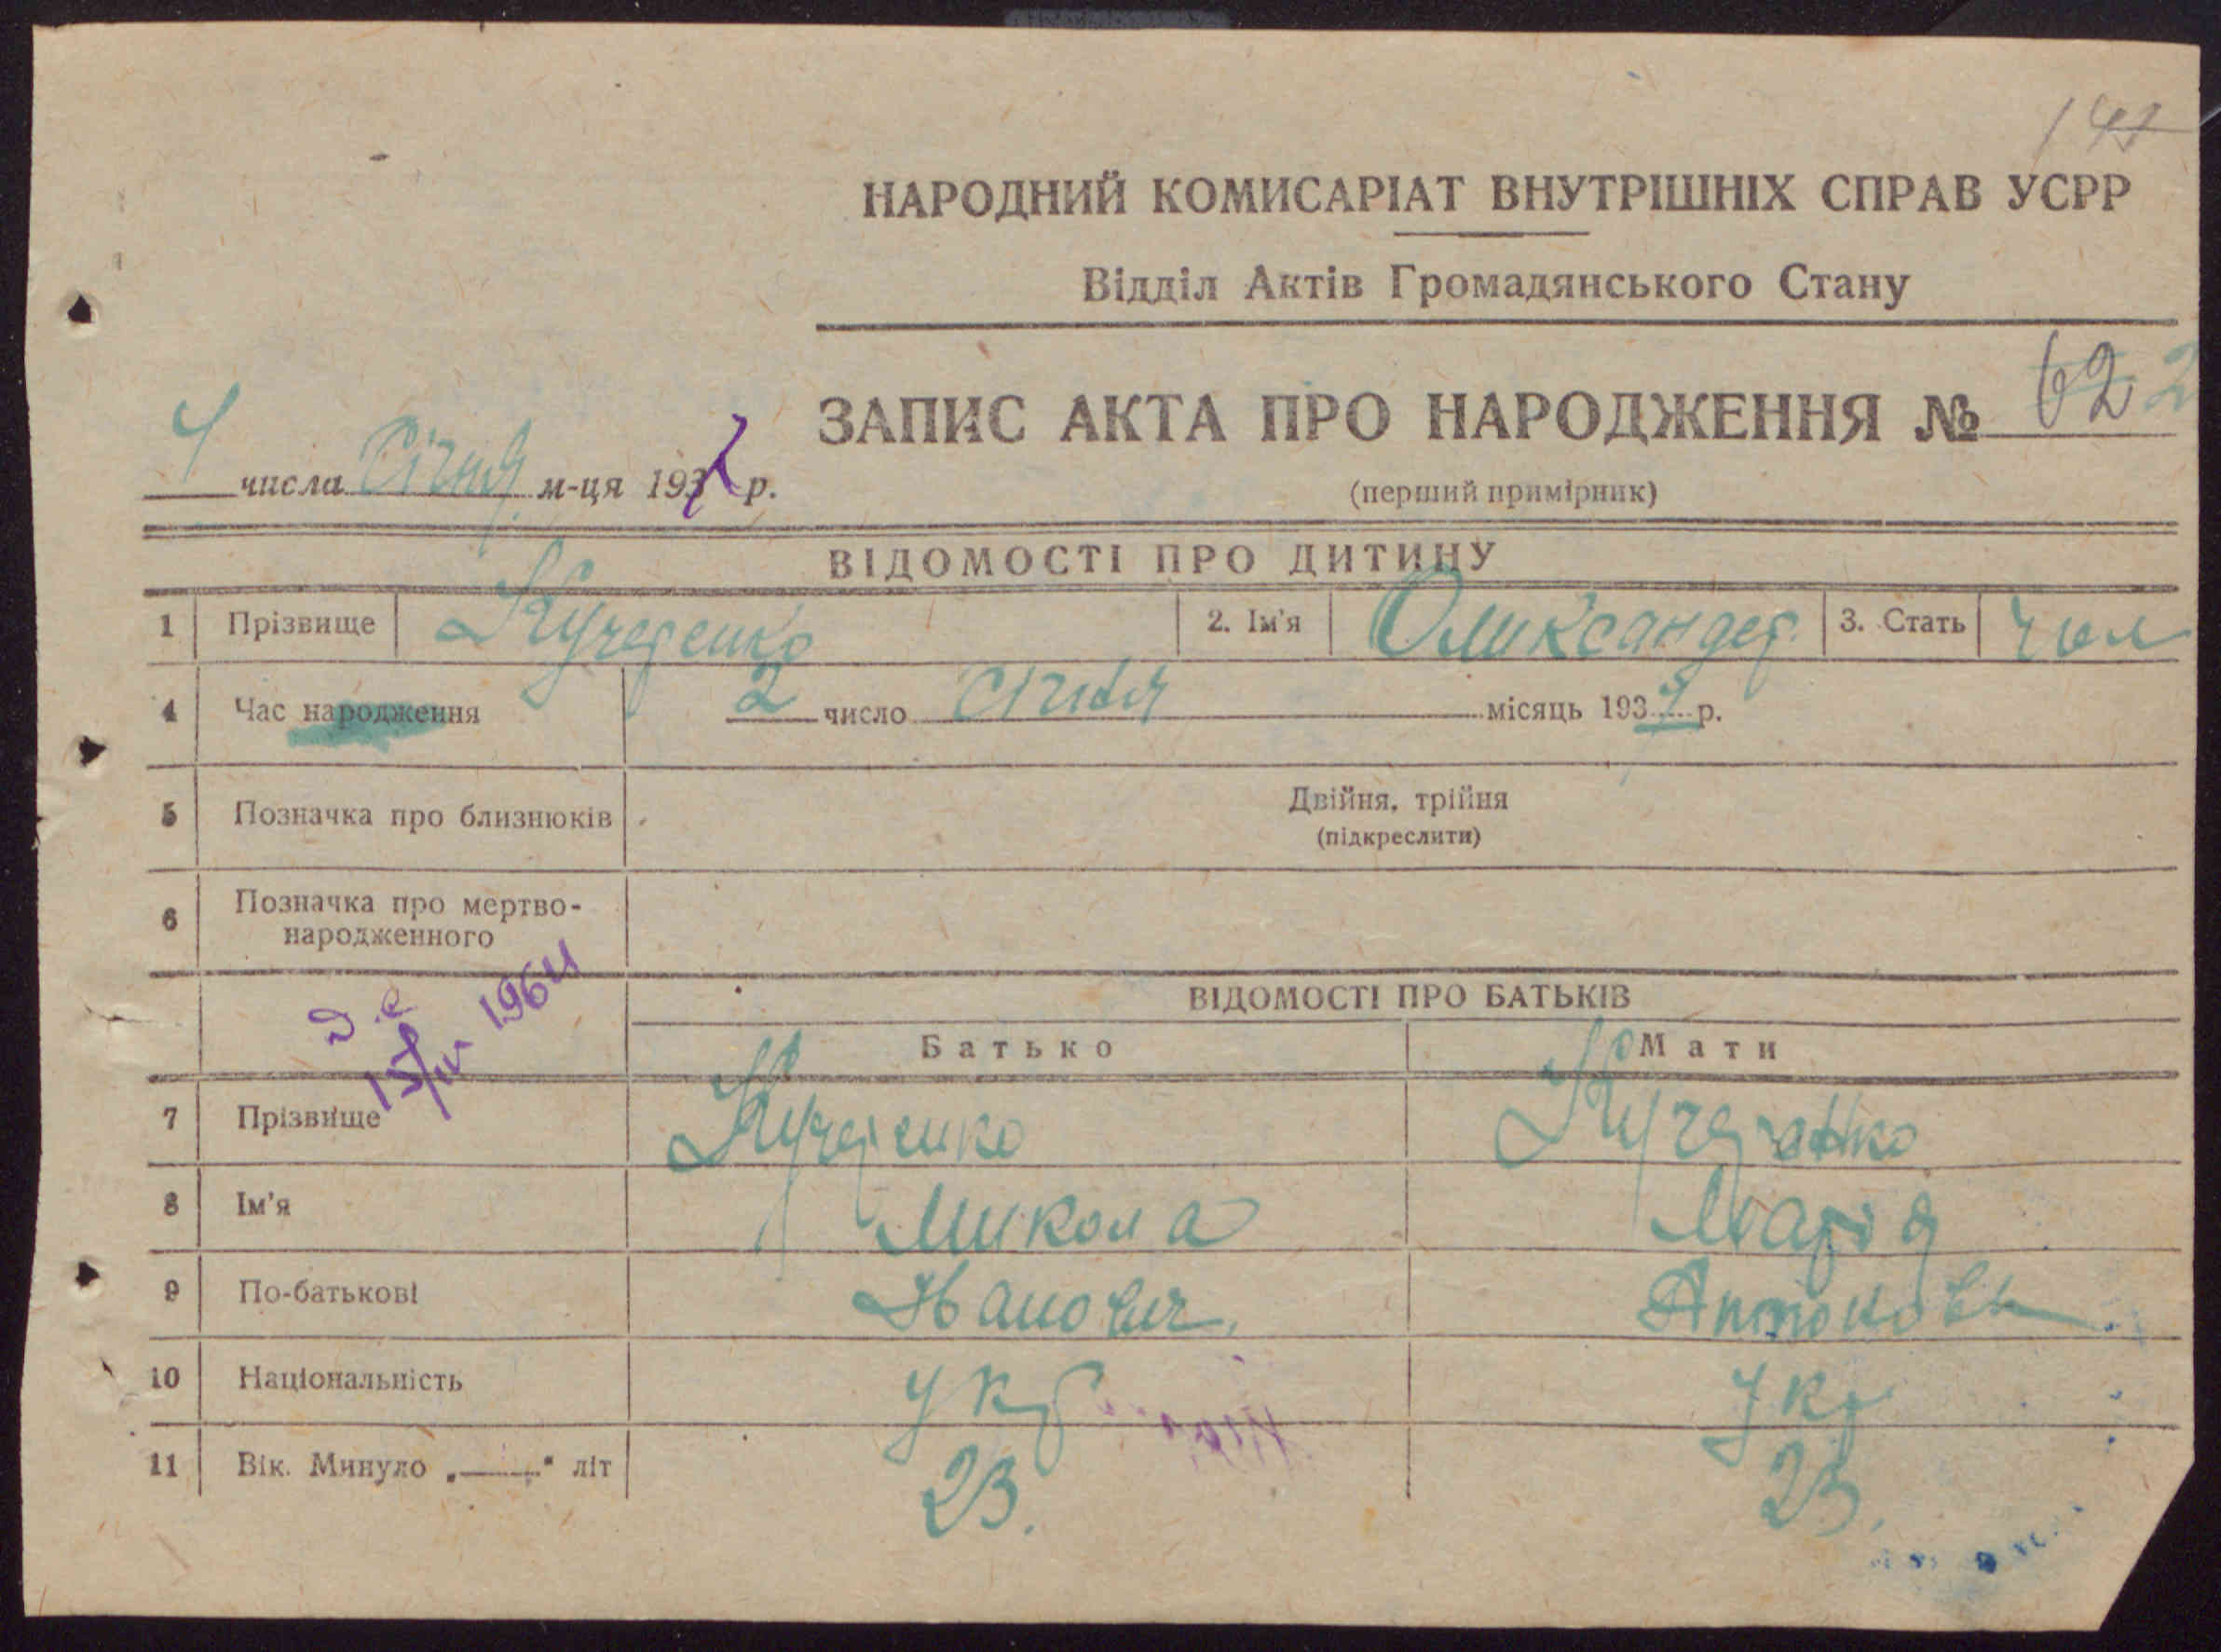 НАРОДНИЙ КОМИСАРІАТ ВНУТРІШНІХ СПРАВ УСРР
Відділ Актів Громадянського Стану
ЗАПИС АКТА ПРО НАРОДЖЕННЯ № 62
4 числа Січня м-ця 1937 р.
(перший примірник)
ВІДОМОСТІ ПРО ДИТИНУ
1 Прізвище Кучеренко 2. Ім'я Олександер 3. Стать чол
4 Час народження 2 число січня місяць 1937 р.
5 Позначка про близнюків Двійня, трійня
(підкреслити)
6 Позначка про мертво-
народженного
15/IV 1964
ВІДОМОСТІ ПРО БАТЬКІВ
Батько Мати
7 Прізвище Кучеренко Кучеренко
8 Ім'я Микола Марія
9 По-батькові Іванович Антонов
10 Національність Укр Укр
11 Вік. Минуло „——" літ 23. 23.